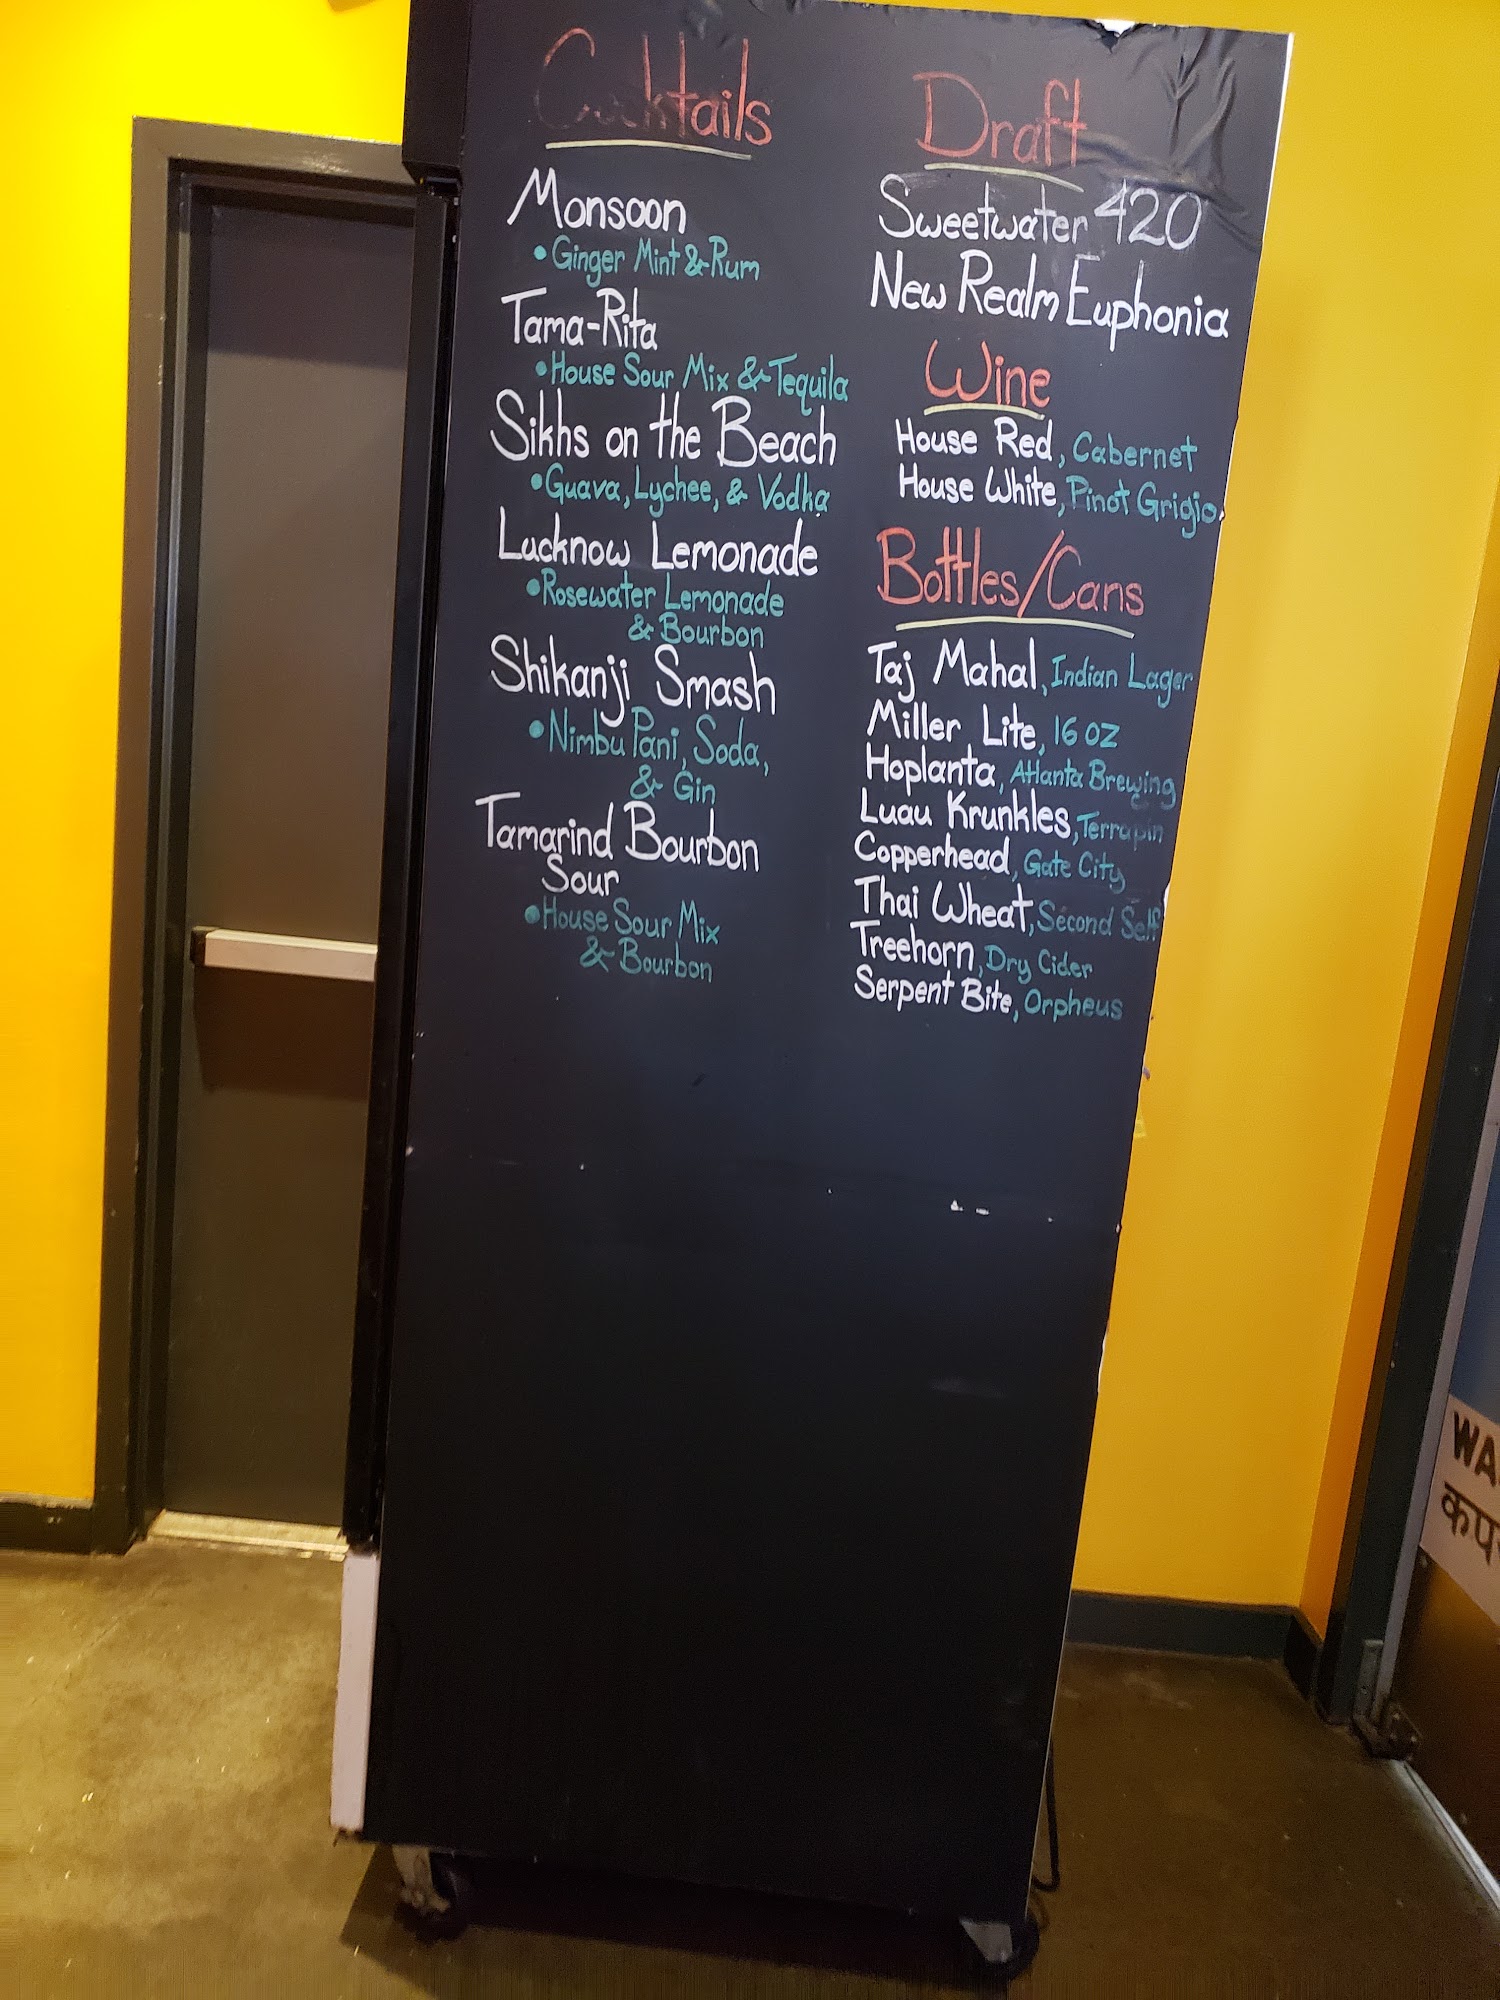 Cocktails
Monsoon
• Ginger Mint & Rum
Tama-Rita
• House Sour Mix & Tequila
Sikhs on the Beach
• Guava, Lychee, & Vodka
Lucknow Lemonade
• Rosewater Lemonade
& Bourbon
Shikanji Smash
• Nimbu Pani, Soda,
& Gin
Tamarind Bourbon
Sour
• House Sour Mix
& Bourbon
Draft
Sweetwater 420
New Realm Euphonia
Wine
House Red, Cabernet
House White, Pinot Grigio
Bottles/Cans
Taj Mahal, Indian Lager
Miller Lite, 16 oz
Hoplanta, Atlanta Brewing
Luau Krunkles, Terrapin
Copperhead, Gate City
Thai Wheat, Second Self
Treehorn, Dry Cider
Serpent Bite, Orpheus
WA